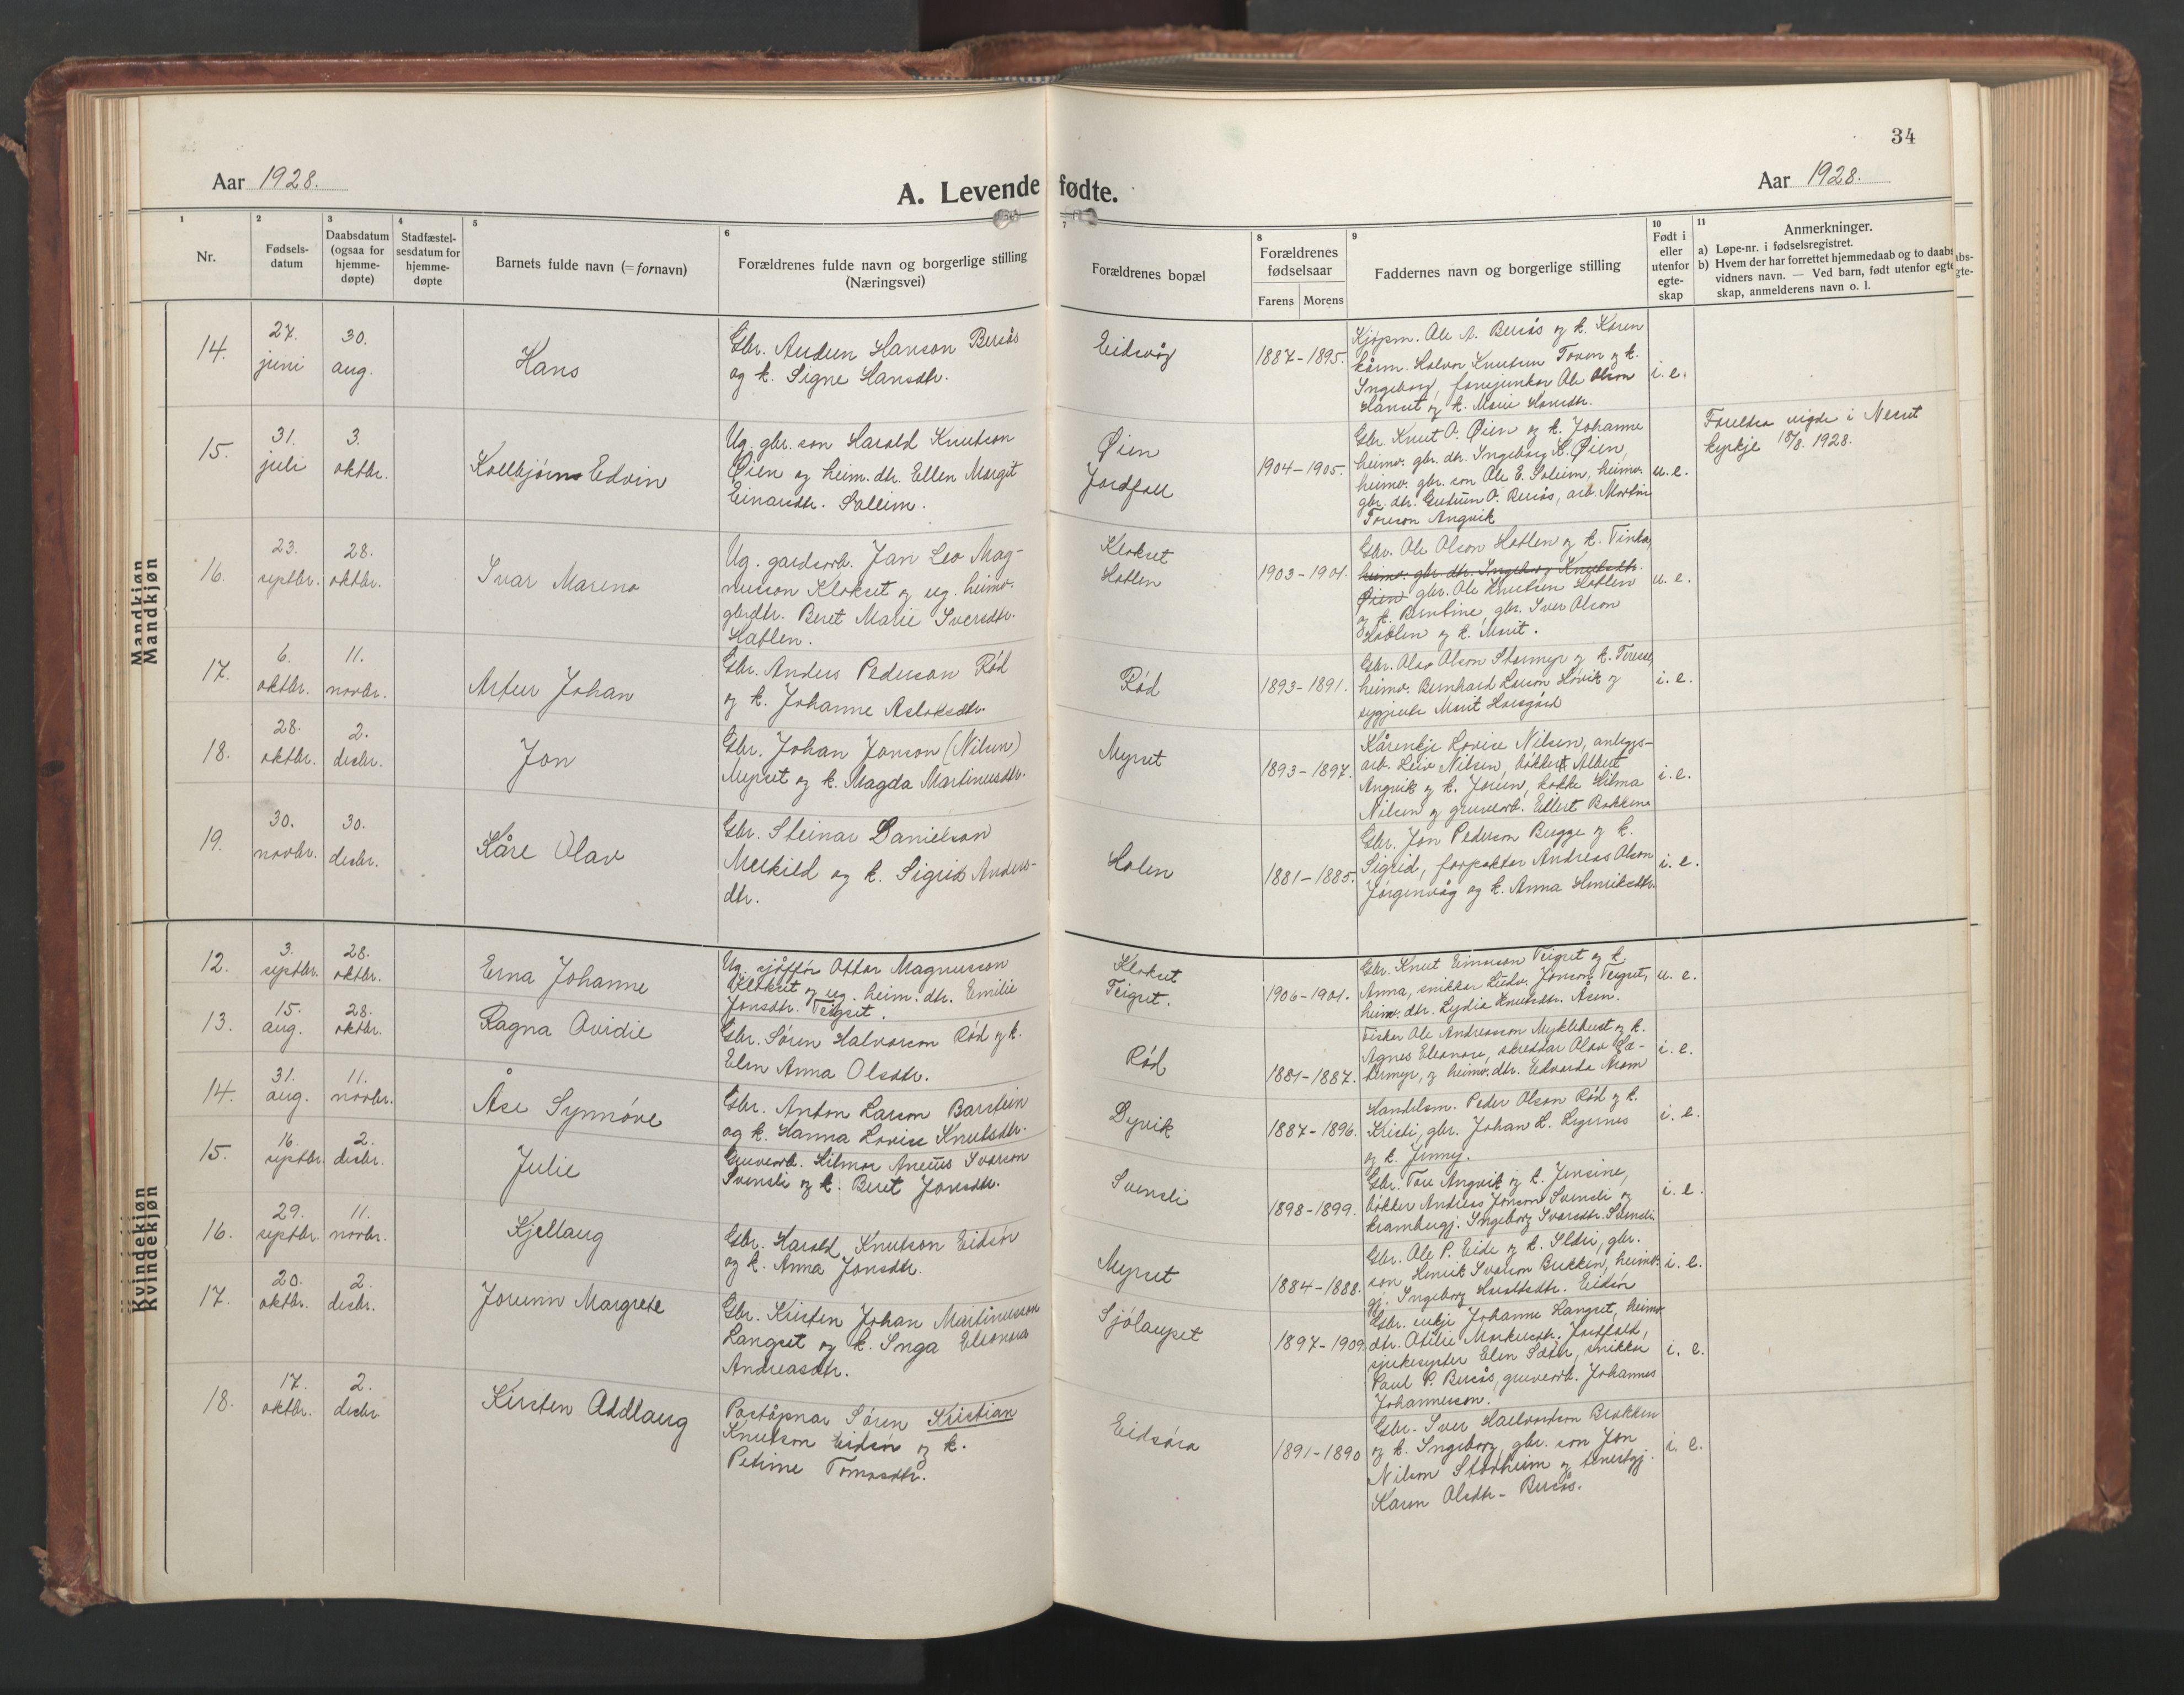 34
Aar 1928.
A. Levende fødte.
Aar 1928.
1
2
3
4
5
6
7
8
9
10
11
Nr.
Fødsels-
datum
Daabsdatum
(ogsaa for
hjemme-
døpte)
Stadfæstel-
sesdatum for
hjemme-
døpte
Barnets fulde navn (= fornavn)
Forældrenes fulde navn og borgerlige stilling
(Næringsvei)
Forældrenes bopæl
Forældrenes
fødselsaar
Farens Morens
Faddernes navn og borgerlige stilling
Født i
eller
utenfor
egte-
skap
Anmerkninger.
a) Løpe-nr. i fødselsregistret.
b) Hvem der har forrettet hjemmedaab og to daabs-
vidners navn. — Ved barn, født utenfor egte-
skap, anmelderens navn o. l.
Mandkjøn
Mandkjøn
14.
27.
juni
30.
aug.
Hans
Gbr. Audun Hanson Bersås
og k. Signe Hansdtr.
Eidsvåg
1887 - 1895.
Kjøpm. Ole A. Bersås og k. Karen
kårm. Halvor Knutson Toven og k.
Ingeborg, forejunkar Ole Olson
Hanset og k. Marie Hansdtr.
i. e.
15.
31.
juli
3.
oktbr.
Kolbjørn Edvin
Ug. gbr. son Harald Knutson
Øien og heim. dtr. Ellen Margit
Einarsdtr. Solleim.
Øien
Jordfall
1904 - 1905.
Gbr. Knut O. Øien og k. Johanne
heimv. gbr. dtr. Ingeborg K. Øien,
heimv. gbr. son Ole E. Soleim, heimv.
gbr. dtr. Gudrun O. Bersås, arb. Martin
Toreson Angvik
u. e.
Foreldra vigde i Nesset
kyrkje 18/8. 1928.
16.
23.
septbr.
28.
oktbr.
Ivar Mareno
Ug. gardsarb. Jan Leo Mag-
nusson Klokset og ug. heimv.
gbrdtr. Beret Marie Iversdtr.
Hatlen.
Klokset
Hatlen
1903 - 1901.
Gbr. Ole Olson Hatlen og k. Tinka,
heimv. gbr. dtr. Ingeborg Knutsdtr.
Øien gbr. Ole Knutson Hatlen
og k. Berntine, gbr. Iver Olson
Hatlen og k. Marit.
u. e.
17.
6.
oktbr.
11.
novbr.
Artur Johan
Gbr. Anders Pederson Rød
og k. Johanne Aslaksdtr.
Rød
1893 - 1891.
Gbr. Olav Olson Stormyr og k. Terese,
heimv. Bernhard Larson Hovik og
sygjente Marit Horsgård
i. e.
18.
28.
oktbr.
2.
desbr.
Jon
Gbr. Johan Jonson (Nilsen)
Myrset og k. Magda Martinusdtr.
Myrset
1893 - 1897.
Kårenkje Lovise Nilsen, anleggs-
arb. Leiv Nilsen, bøkker Albert
Angvik og k. Jorun, kokke Hilma
Nilsen og gruvearb. Ellert Bakken
i. e.
19.
30.
novbr.
30.
desbr.
Kåre Olav
Gbr. Steinar Danielson
Meskild og k. Sigrid Anders-
dtr.
Holen
1881 - 1885.
Gbr. Jon Pederson Bugge og k.
Sigrid, forpaktar Andreas Olson
Jørgenvåg og k. Anna Henriksdtr.
i. e.
Kvindekjøn
Kvindekjøn
12.
3.
septbr.
28.
oktbr.
Erna Johanne
Ug. sjåffør Ottar Magnusson
Klokset og ug. heim. dtr. Emilie
Jonsdtr. Teigset.
Klokset
Teigset.
1906 - 1901.
Gbr. Knut Einarson Teigset og k.
Anna, snikkar Ludv. Jonson Teigset,
heimv. dtr. Lydia Knutsdtr. Åsen.
u. e.
13.
15.
aug.
28.
oktbr.
Ragna Ovidie
Gbr. Søren Halvorson Rød og k.
Elen Anna Olsdtr.
Rød
1881 - 1887.
Fisker Ole Andreasson Myklebust og k.
Agnes Eleonore, skreddar Olav Sæ-
termyr, og heimv. dtr. Edvarda Moen
i. e.
14.
31.
aug.
11.
novbr.
Åse Synnøve
Gbr. Anton Larson Barstein
og k. Hanna Lovise Knutsdtr.
Dyvik
1887 - 1896.
Handelsm. Peder Olson Rød og k.
Kristi, gbr. Johan L. Lysenes
og k. Jenny.
i. e.
15.
16.
septbr.
2.
desbr.
Julie
Gruvearb. Hilmar Aneus Ivarson
Svensli og k. Beret Jonsdtr.
Svensli
1898 - 1899.
Gbr. Tore Angvik og k. Jensine,
bøkker Andreas Jonson Svensli og
krambugj. Ingeborg Ivarsdtr. Svensli
i. e.
16.
29.
septbr.
11.
novbr.
Kjellaug
Gbr. Harald Knutson Eidsør
og k. Anna Jonsdtr.
Myrset
1884 - 1888.
Gbr. Ole P. Eide og k. Ildri, gbr.
son Henrik Ivarson Bakken, heimv.
gj. Ingeborg Haraldsdtr. Eidsør
i. e.
17.
20.
oktbr.
2.
desbr.
Jorunn Margrete
Gbr. Kristen Johan Martinusson
Langset og k. Inga Eleonora
Andreasdtr.
Sjølaupset
1897 - 1909.
Gbr. enkje Johanne Langset, heimv.
dtr. Otilie Markusdtr. Jordfald,
sjukesyster Elen Sæter, snikkar
Paul P. Bersås, gruvearb. Johannes
Johannesson.
i. e.
18.
17.
oktbr.
2.
desbr
Kirsten Oddlaug
Postopnar Søren Kristian
Knutson Eidsør og k.
Petrine Tomasdtr.
Eidsøra
1891 - 1890
Gbr. Iver Halvorson Brakken
og k. Ingeborg, gbr. son Jon
Nilson Stordheim og tenestgj.
Karen Olsdtr. Bersås.
i. e.